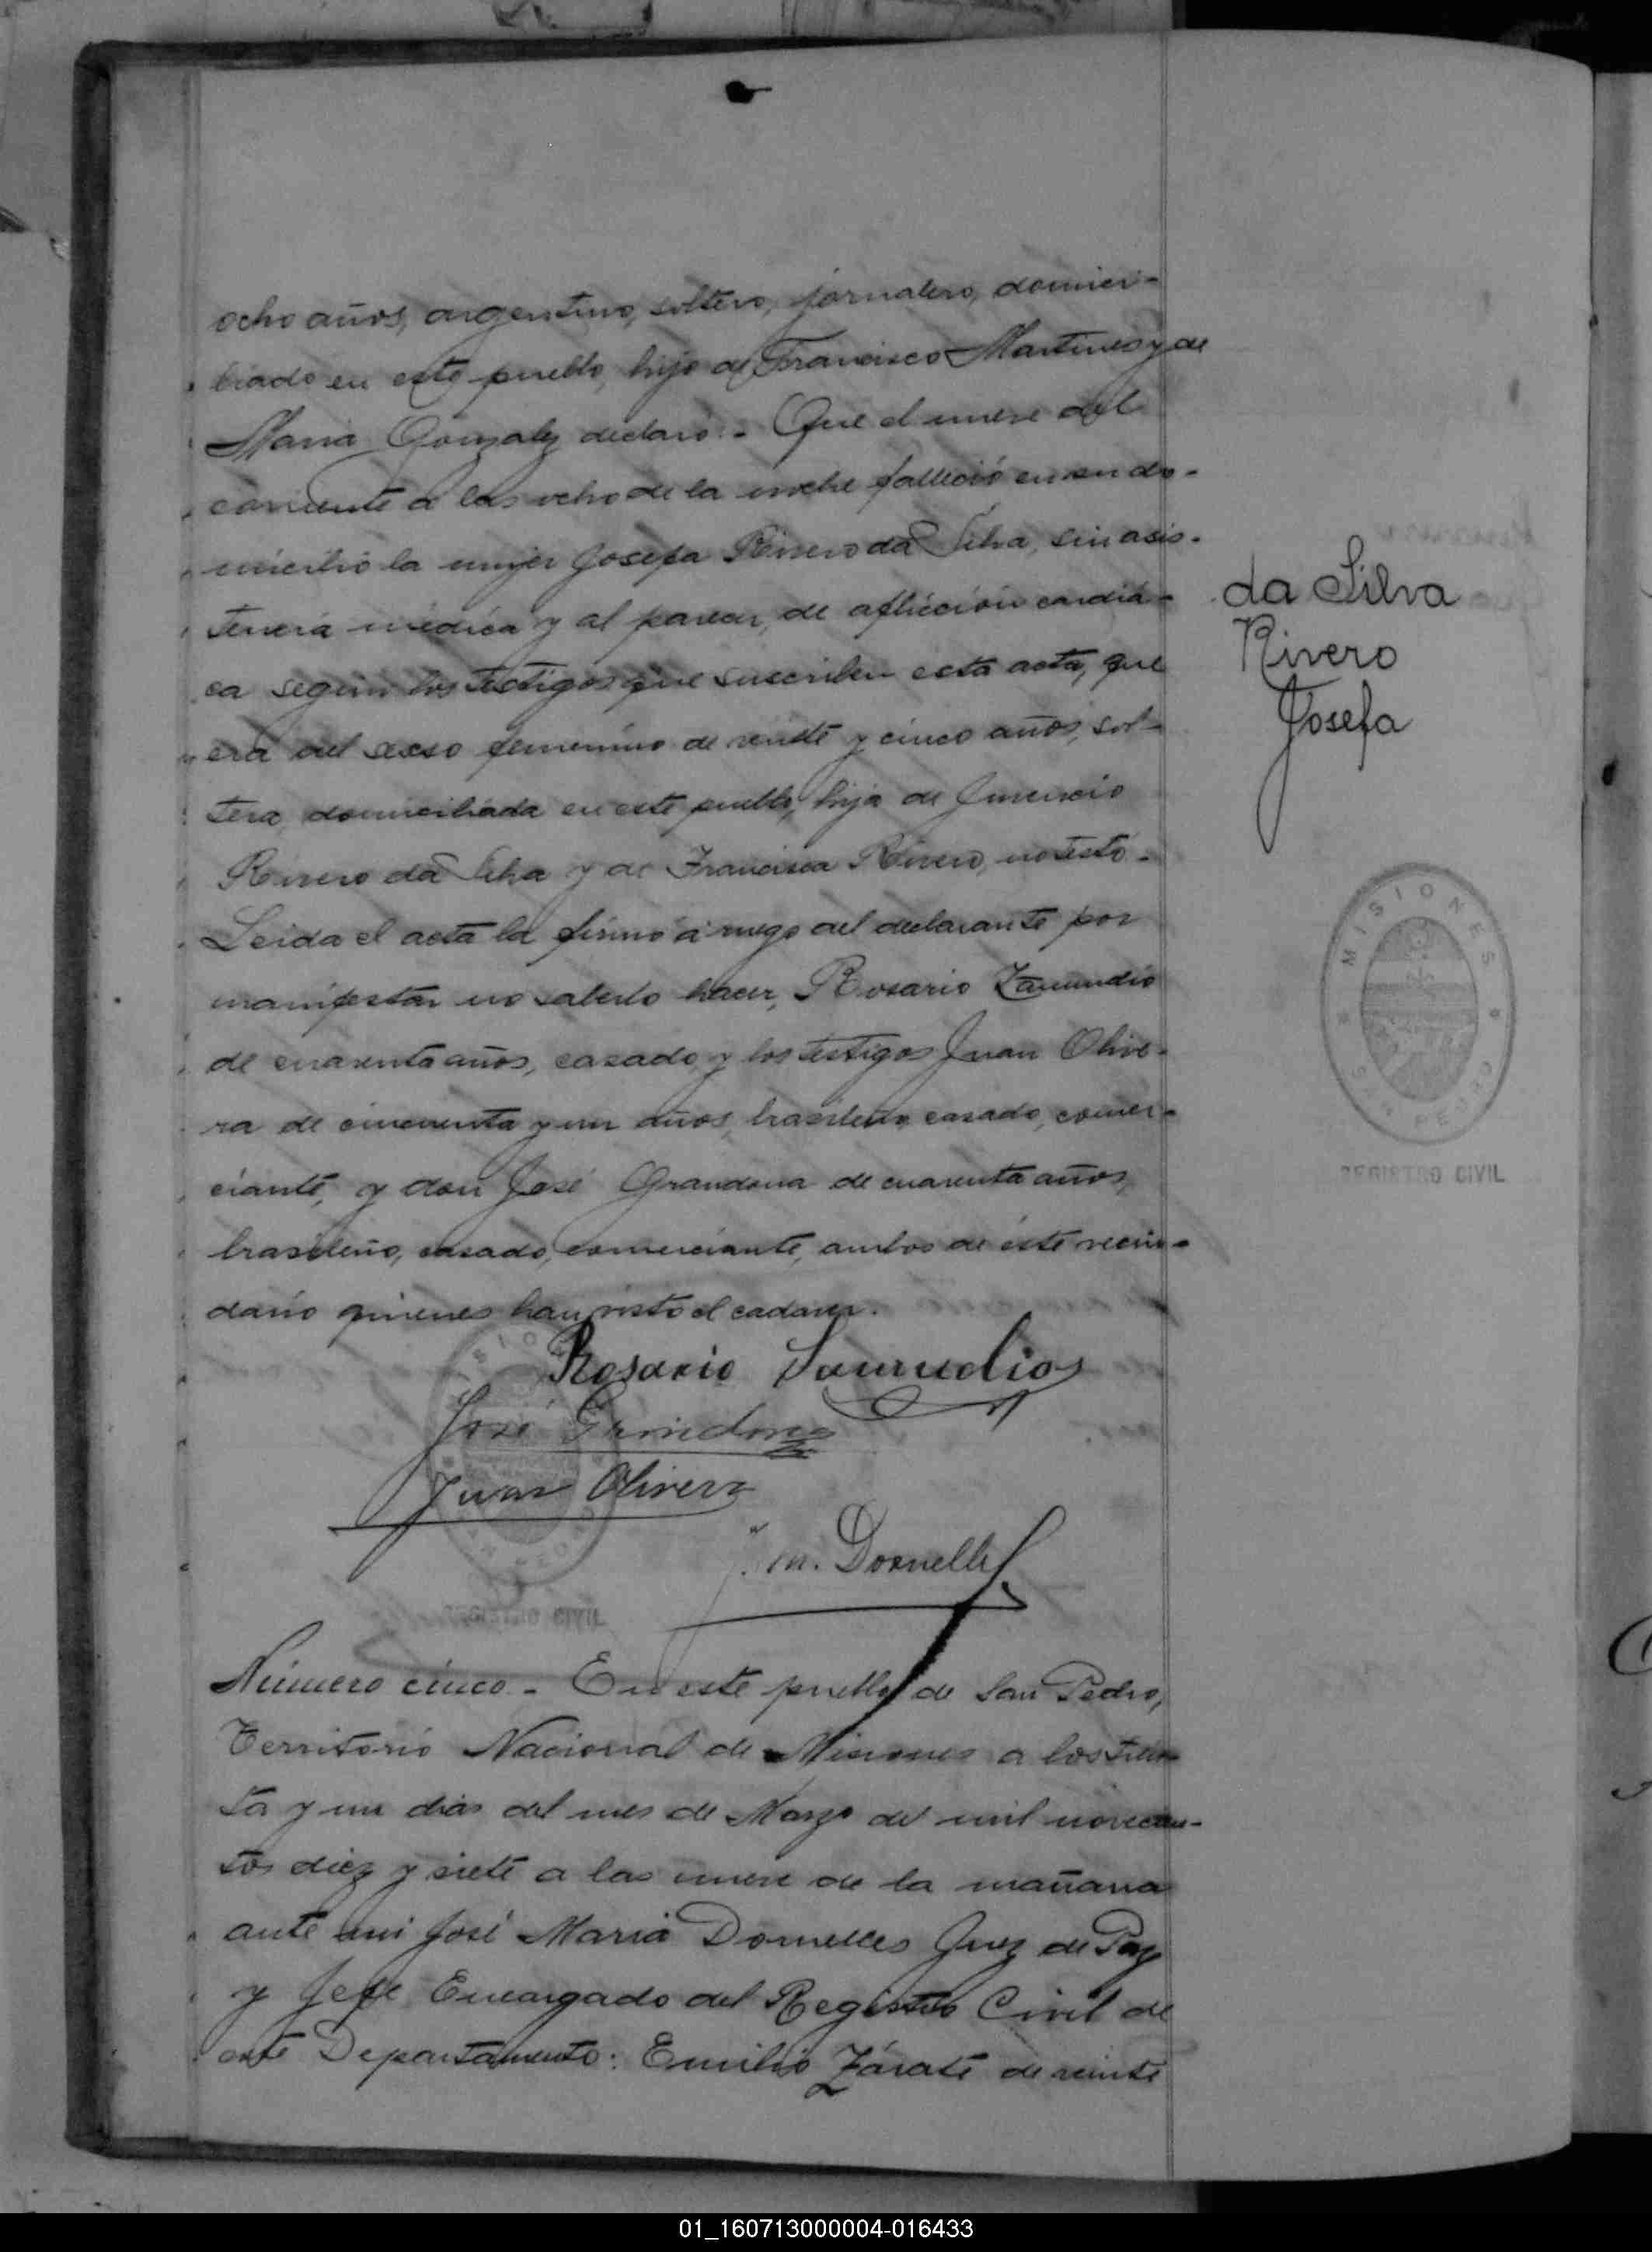 ocho años, argentino, soltero, jornalero, domici-
liado en este pueblo, hijo de Francisco Martines y de
Maria Gonzalez declaró:- Que el nueve del
corriente a las ocho de la noche falleció en su do-
micilio la mujer Josefa Rivero da Silva, sin asis-
tencia médica y al parecer, de aflicción cardia-
ca segun los testigos que suscriben esta acta, que
era del sexso femenino de veinte y cinco años, sol-
tera, domiciliada en este pueblo, hija de
Rivero da Silva y de Francisca Rivero, no testó.-
Leida el acta la firmó a ruego del declarante por
manifestar no saberlo hacer, Rosario Zamudio
de cuarenta años, casado y los testigos Juan Olive-
ra de cincuenta y un años, brasileño, casado, comer-
ciante, y don José Grandona de cuarenta años,
brasileño, casado, comerciante, ambos de éste vecin-
dario quienes han visto el cadaver.
Rosario Samudios
José Grandona
Juan Olivera
J. M. Dornelles
REGISTRO CIVIL
Número cinco.- En este pueblo de San Pedro,
Territorio Nacional de Misiones a los trein-
ta y un dias del mes de Marzo del mil novecien-
tos diez y siete a las nueve de la mañana
ante mi José Maria Dornelles Juez de Paz
y Jefe Encargado del Registro Civil de
este Departamento: Emilio Zárate de veinte
da Silva
Rivero
Josefa
MISIONES
SAN PEDRO
REGISTRO CIVIL
01_160713000004-016433